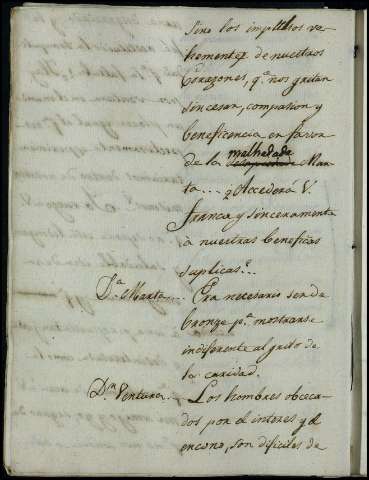 Sino los impulsos ve-
hementes de nuestros
Corazones, q.e nos gritan
sin cesar, compasion y
beneficencia en favor
de la malhadada Mar-
ta... ¿Accederá V.
franca y sinceramente
à nuestras beneficas
suplicas?...
D.a Marta... Era necesario ser de
bronze p.a mostrarse
indiferente al grito de
la caridad.
D.n Ventura. - Los hombres obceca-
dos por el interes y el
encono, son dificiles de